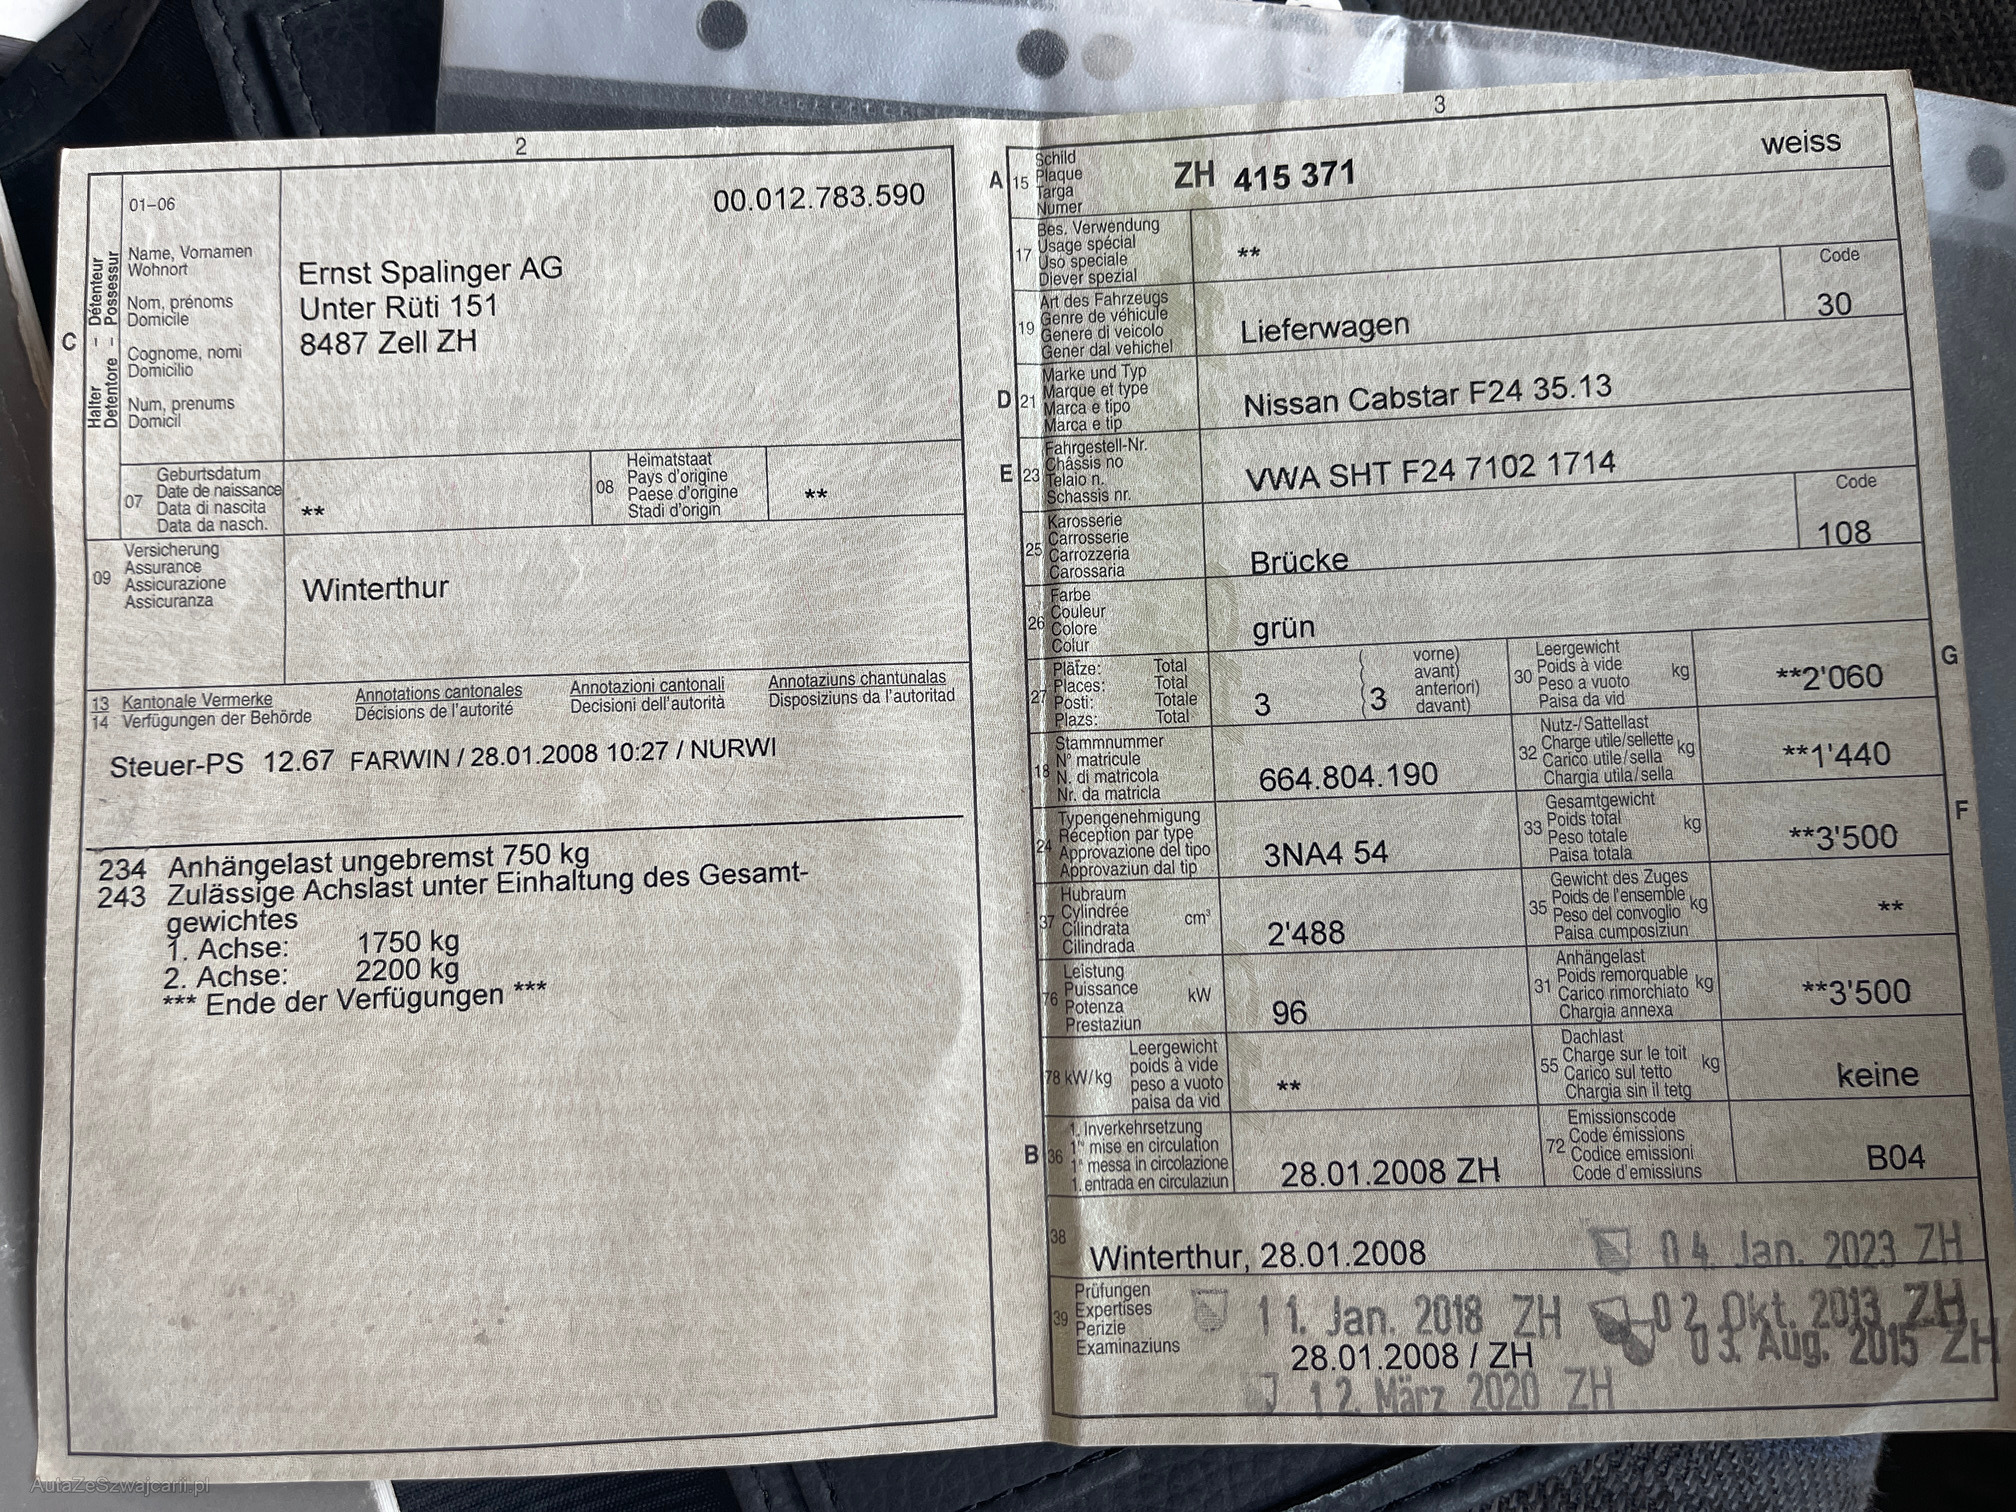 2
01–06
00.012.783.590
C
Halter – Détenteur
Detentore – Possessur
Name, Vornamen
Wohnort
Nom, prénoms
Domicile
Cognome, nomi
Domicilio
Num, prenums
Domicil
Ernst Spalinger AG
Unter Rüti 151
8487 Zell ZH
07
Geburtsdatum
Date de naissance
Data di nascita
Data da nasch.
**
08
Heimatstaat
Pays d'origine
Paese d'origine
Stadi d'origin
**
09
Versicherung
Assurance
Assicurazione
Assicuranza
Winterthur
13 Kantonale Vermerke Annotations cantonales Annotazioni cantonali Annotaziuns chantunalas
14 Verfügungen der Behörde Décisions de l'autorité Decisioni dell'autorità Disposiziuns da l'autoritad
Steuer-PS 12.67 FARWIN / 28.01.2008 10:27 / NURWI
234 Anhängelast ungebremst 750 kg
243 Zulässige Achslast unter Einhaltung des Gesamt-
gewichtes
1. Achse: 1750 kg
2. Achse: 2200 kg
*** Ende der Verfügungen ***
3
A 15
Schild
Plaque
Targa
Numer
ZH 415 371
weiss
17
Bes. Verwendung
Usage spécial
Uso speciale
Diever spezial
**
19
Art des Fahrzeugs
Genre de véhicule
Genere di veicolo
Gener dal vehichel
Lieferwagen
Code
30
D 21
Marke und Typ
Marque et type
Marca e tipo
Marca e tip
Nissan Cabstar F24 35.13
E 23
Fahrgestell-Nr.
Châssis no
Telaio n.
Schassis nr.
VWA SHT F24 7102 1714
25
Karosserie
Carrosserie
Carrozzeria
Carossaria
Brücke
Code
108
26
Farbe
Couleur
Colore
Colur
grün
27
Plätze: Total
Places: Total
Posti: Totale
Plazs: Total
3
3
vorne)
avant)
anteriori)
davant)
30
Leergewicht
Poids à vide
Peso a vuoto
Paisa da vid
kg
**2'060
G
18
Stammnummer
N° matricule
N. di matricola
Nr. da matricla
664.804.190
32
Nutz-/Sattellast
Charge utile/sellette
Carico utile/sella
Chargia utila/sella
kg
**1'440
24
Typengenehmigung
Réception par type
Approvazione del tipo
Approvaziun dal tip
3NA4 54
33
Gesamtgewicht
Poids total
Peso totale
Paisa totala
kg
**3'500
F
37
Hubraum
Cylindrée
Cilindrata
Cilindrada
cm³
2'488
35
Gewicht des Zuges
Poids de l'ensemble
Peso del convoglio
Paisa cumposiziun
kg
**
76
Leistung
Puissance
Potenza
Prestaziun
kW
96
31
Anhängelast
Poids remorquable
Carico rimorchiato
Chargia annexa
kg
**3'500
78 kW/kg
Leergewicht
poids à vide
peso a vuoto
paisa da vid
**
55
Dachlast
Charge sur le toit
Carico sul tetto
Chargia sin il tetg
kg
keine
B 36
1. Inverkehrsetzung
1re mise en circulation
1a messa in circolazione
1. entrada en circulaziun
28.01.2008 ZH
72
Emissionscode
Code émissions
Codice emissioni
Code d'emissiuns
B04
38
Winterthur, 28.01.2008
04. Jan. 2023 ZH
39
Prüfungen
Expertises
Perizie
Examinaziuns
11. Jan. 2018 ZH
02. Okt. 2013 ZH
28.01.2008 / ZH
03. Aug. 2015 ZH
12. März 2020 ZH
AutaZeSzwajcarii.pl